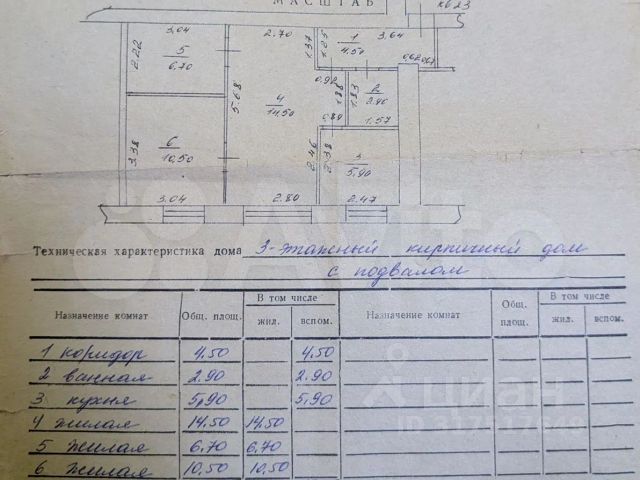 МАСШТАБ
кв 23
3.04 2.70 1.37 1.25 1 4.50 3.64
2.22 5 6.70 0.62 0.67
0.92
5.68 4 14.50 1.88 1.83 2 2.90
0.89 1.57
3.38 6 10.50 2.46 2.38 3 5.90
3.04 2.80 2.47
Техническая характеристика дома 3-этажный кирпичный дом
с подвалом
Назначение комнат Общ. площ. В том числе жил. вспом. Назначение комнат Общ. площ. В том числе жил. вспом.
1 коридор 4.50 4.50
2 ванная 2.90 2.90
3 кухня 5.90 5.90
4 жилая 14.50 14.50
5 жилая 6.70 6.70
6 жилая 10.50 10.50
Avito
Циан